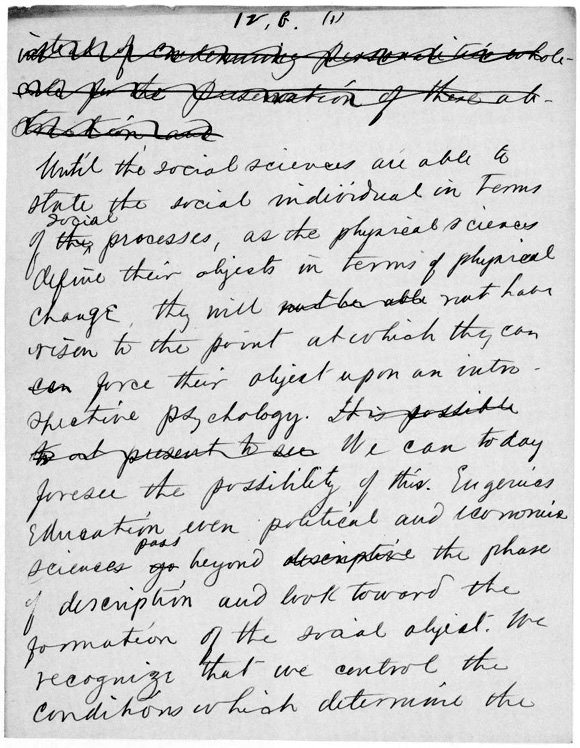 12, B. (1)
instead of condemning personalities whole-
sale for the preservation of these ab-
straction and
Until the social sciences are able to
state the social individual in terms
social
of the processes, as the physical sciences
define their objects in terms of physical
change, they will not be able not have
risen to the point at which they can
can force their object upon an intro-
spective psychology. It is possible
to at present to see We can today
foresee the possibility of this. Eugenics
Education even political and economic
pass
sciences go beyond descriptive the phase
of description and look toward the
formation of the social object. We
recognize that we control the
conditions which determine the